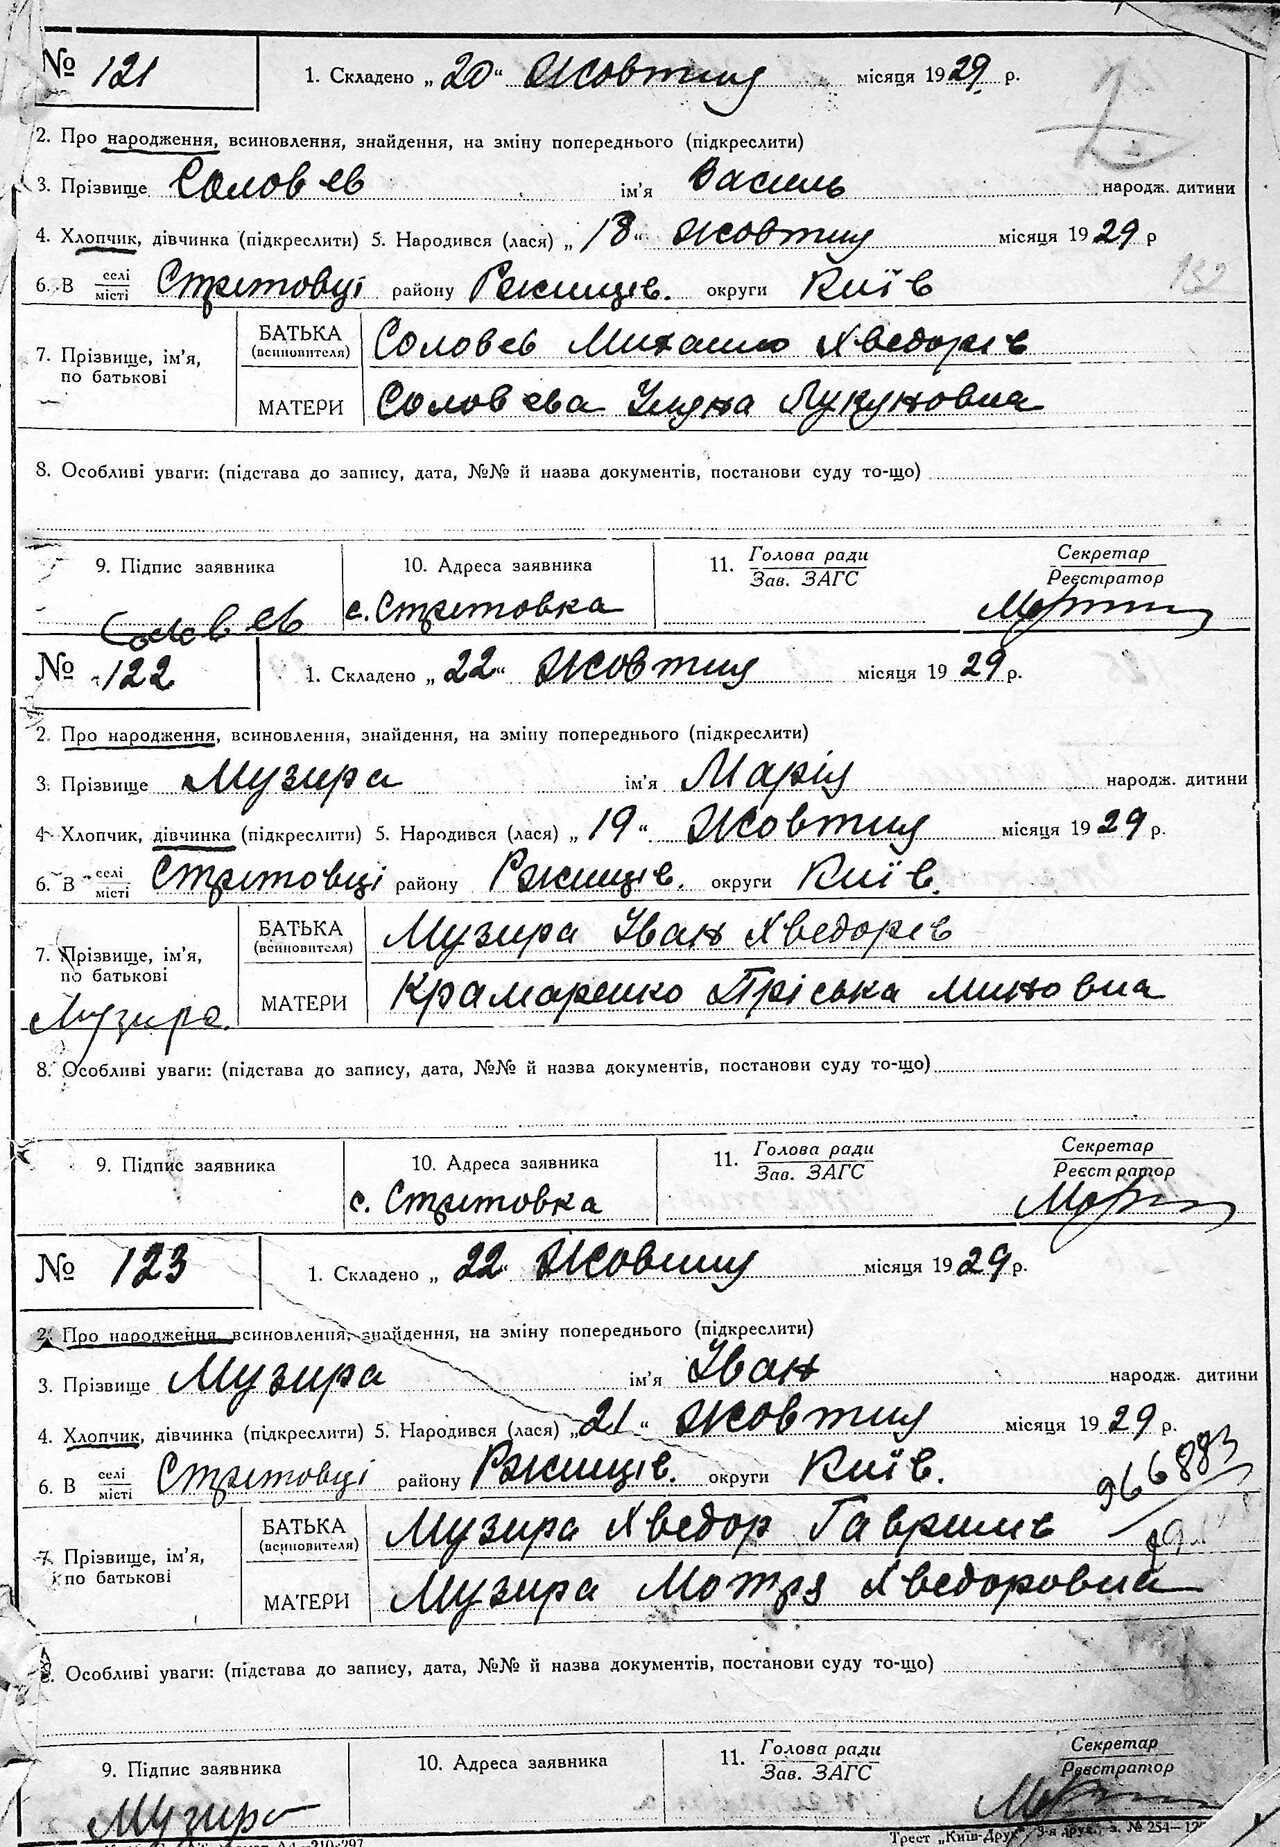 № 121
1. Складено „20“ Жовтня місяця 1929 р.
2. Про народження, всиновлення, знайдення, на зміну попереднього (підкреслити)
3. Прізвище Соловєв ім'я Василь народж. дитини
4. Хлопчик, дівчинка (підкреслити) 5. Народився (лася) „18“ Жовтня місяця 1929 р
132
6. В селі/місті Стритовці району Ржищів. округи Київ
7. Прізвище, ім'я, по батькові
БАТЬКА (всиновителя) Соловєв Михайло Хведорів
МАТЕРИ Соловєва Уляна Лукуновна
8. Особливі уваги: (підстава до запису, дата, №№ й назва документів, постанови суду то-що)
9. Підпис заявника 10. Адреса заявника 11. Голова ради/Зав. ЗАГС Секретар/Реєстратор
Соловєв с. Стритовка
№ 122
1. Складено „22“ Жовтня місяця 1929 р.
2. Про народження, всиновлення, знайдення, на зміну попереднього (підкреслити)
3. Прізвище Музира ім'я Марія народж. дитини
4. Хлопчик, дівчинка (підкреслити) 5. Народився (лася) „19“ Жовтня місяця 1929 р.
6. В селі/місті Стритовці району Ржищів. округи Київ.
7. Прізвище, ім'я, по батькові
БАТЬКА (всиновителя) Музира Іван Хведорів
МАТЕРИ Крамаренко Пріська Миновна
Музира.
8. Особливі уваги: (підстава до запису, дата, №№ й назва документів, постанови суду то-що)
9. Підпис заявника 10. Адреса заявника 11. Голова ради/Зав. ЗАГС Секретар/Реєстратор
с. Стритовка
№ 123
1. Складено „22“ Жовтня місяця 1929 р.
2. Про народження, всиновлення, знайдення, на зміну попереднього (підкреслити)
3. Прізвище Музира ім'я Іван народж. дитини
4. Хлопчик, дівчинка (підкреслити) 5. Народився (лася) „21“ Жовтня місяця 1929 р.
6. В селі/місті Стритовці району Ржищів. округи Київ.
966883
7. Прізвище, ім'я, по батькові
БАТЬКА (всиновителя) Музира Хведор Гаврилів
МАТЕРИ Музира Мотря Хведоровна
8. Особливі уваги: (підстава до запису, дата, №№ й назва документів, постанови суду то-що)
9. Підпис заявника 10. Адреса заявника 11. Голова ради/Зав. ЗАГС Секретар/Реєстратор
Музира
Трест „Киш-Друк“,